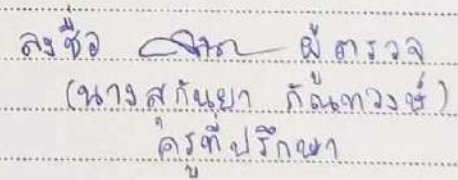 ลงชื่อ ผู้ตรวจ
(นางสุกันยา ภัณฑวงษ์)
ครูที่ปรึกษา